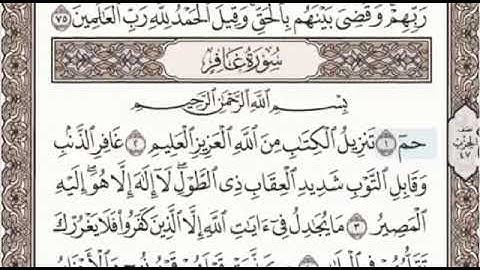 رَبِّهِمْ وَقُضِىَ بَيْنَهُم بِٱلْحَقِّ وَقِيلَ ٱلْحَمْدُ لِلَّهِ رَبِّ ٱلْعَٰلَمِينَ ٧٥
سُورَةُ غَافِرٍ
بِسْمِ ٱللَّهِ ٱلرَّحْمَٰنِ ٱلرَّحِيمِ
حمٓ ١ تَنزِيلُ ٱلْكِتَٰبِ مِنَ ٱللَّهِ ٱلْعَزِيزِ ٱلْعَلِيمِ ٢ غَافِرِ ٱلذَّنۢبِ
وَقَابِلِ ٱلتَّوْبِ شَدِيدِ ٱلْعِقَابِ ذِى ٱلطَّوْلِ ۖ لَآ إِلَٰهَ إِلَّا هُوَ ۖ إِلَيْهِ
ٱلْمَصِيرُ ٣ مَا يُجَٰدِلُ فِىٓ ءَايَٰتِ ٱللَّهِ إِلَّا ٱلَّذِينَ كَفَرُوا۟ فَلَا يَغْرُرْكَ
نصف
الحزب
٤٧